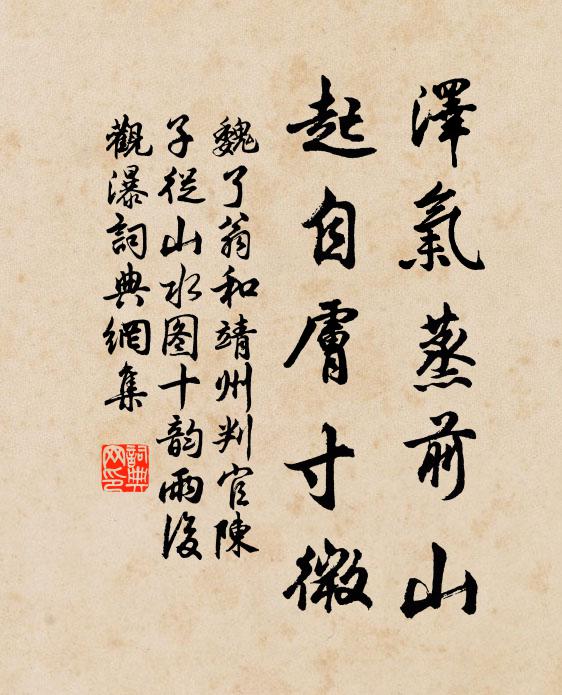 澤氣蒸前山
起自膚寸微
魏了翁和靖州判官陳
子從山水图十韵雨後
觀瀑詞典網集
詞典网印